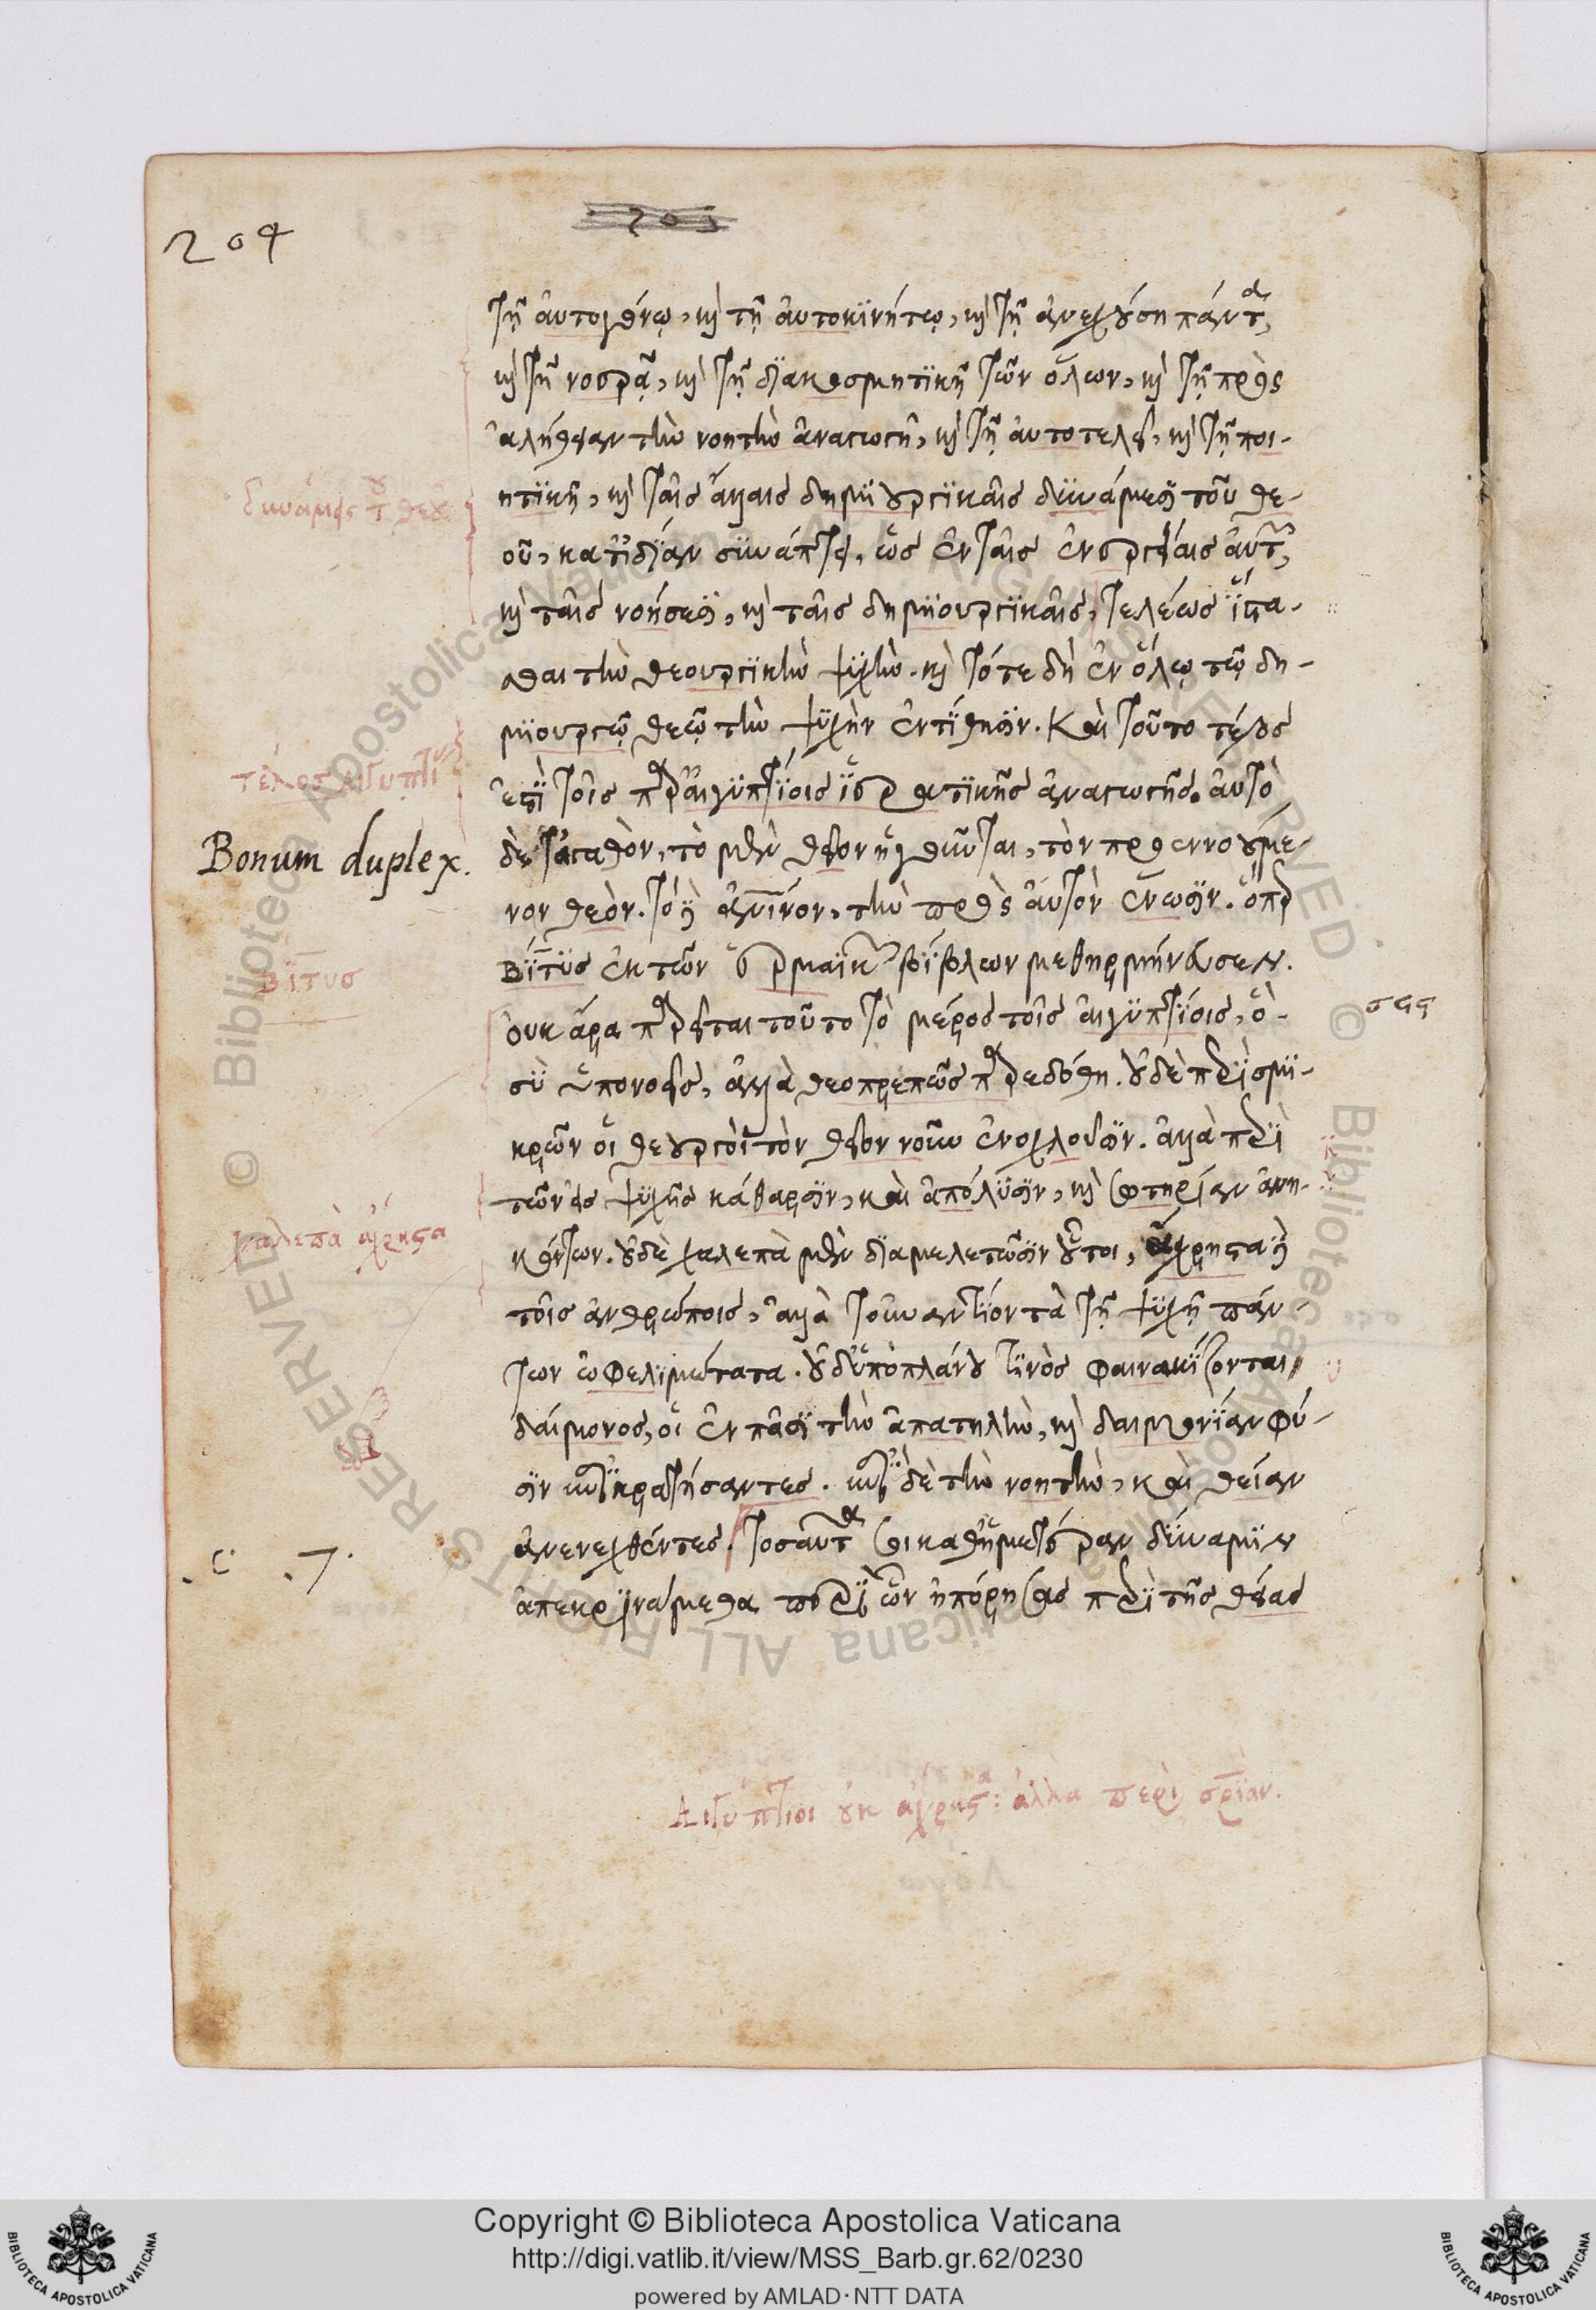 204
203
τῇ αὐτογόνῳ, καὶ τῇ αὐτοκινήτῳ, καὶ τῇ ἀνεχούσῃ πάντα,
καὶ τῇ νοερᾷ, καὶ τῇ διακοσμητικῇ τῶν ὅλων, καὶ τῇ πρὸς
ἀλήθειαν τὴν νοητὴν ἀναγωγῇ, καὶ τῇ αὐτοτελεῖ, καὶ τῇ ποι-
ητικῇ, καὶ ταῖς ἄλλαις δημιουργικαῖς δυνάμεσι τοῦ θε-
οῦ, κατ' ἰδίαν συνάπτει, ὡς ἐν ταῖς ἐνεργείαις αὐτῶν,
καὶ ταῖς νοήσεσι, καὶ ταῖς δημιουργικαῖς, τελέως ἵστα-
σθαι τὴν θεουργικὴν ψυχήν. καὶ τότε δὴ ἐν ὅλῳ τῷ δη-
μιουργῷ θεῷ τὴν ψυχὴν ἐντίθησιν. Καὶ τοῦτο τέλος
ἐστὶ τοῖς παρ' αἰγυπτίοις ἱερατικῆς ἀναγωγῆς. αὐτὸ
δὲ τἀγαθὸν, τὸ μὲν θεῖον ἡγοῦνται, τὸν προεννοούμε-
νον θεόν. τὸ δὲ ἀνθρώπινον, τὴν πρὸς αὐτὸν ἕνωσιν. ὅπερ
Βίτυς ἐκ τῶν ἑρμαϊκῶν βίβλων μεθηρμήνευσεν.
οὐκ ἄρα παρεῖται τοῦτο τὸ μέρος τοῖς αἰγυπτίοις, ὃ
σὺ ὑπονοεῖς, ἀλλὰ θεοπρεπῶς παρεδόθη. οὐδὲ περὶ σμι-
κρῶν οἱ θεουργοὶ τὸν θεῖον νοῦν ἐνοχλοῦσιν. ἀλλὰ περὶ
τῶν εἰς ψυχῆς κάθαρσιν, καὶ ἀπόλυσιν, καὶ σωτηρίαν ἀνη-
κόντων. οὐδὲ χαλεπὰ μὲν διαμελετῶσιν οὗτοι, ἄχρηστα δὲ
τοῖς ἀνθρώποις, ἀλλὰ τοὐναντίον τὰ τῇ ψυχῇ πάν-
των ὠφελιμώτατα. οὐδ' ὑπὸ πλάνου τινὸς φαινακίζονται
δαίμονος, οἱ ἐν πᾶσι τὴν ἀπατηλὴν, καὶ δαιμονίαν φύ-
σιν ἐπικρατήσαντες. ἐπὶ δὲ τὴν νοητὴν, καὶ θείαν
ἀνενεχθέντες. Τοσαῦτά σοι καθ' ἡμετέραν δύναμιν
ἀπεκρινάμεθα περὶ ὧν ἠπόρησας περὶ τῆς θείας
δυνάμεις τοῦ θεοῦ
τέλος Αἰγυπτί
Bonum duplex.
Βίτυς
χαλεπὰ ἄχρηστα
Αἰγύπτιοι οὐκ ἄχρηστα: ἀλλὰ περὶ σωτηρίαν.
Copyright © Biblioteca Apostolica Vaticana
http://digi.vatlib.it/view/MSS_Barb.gr.62/0230
powered by AMLAD · NTT DATA